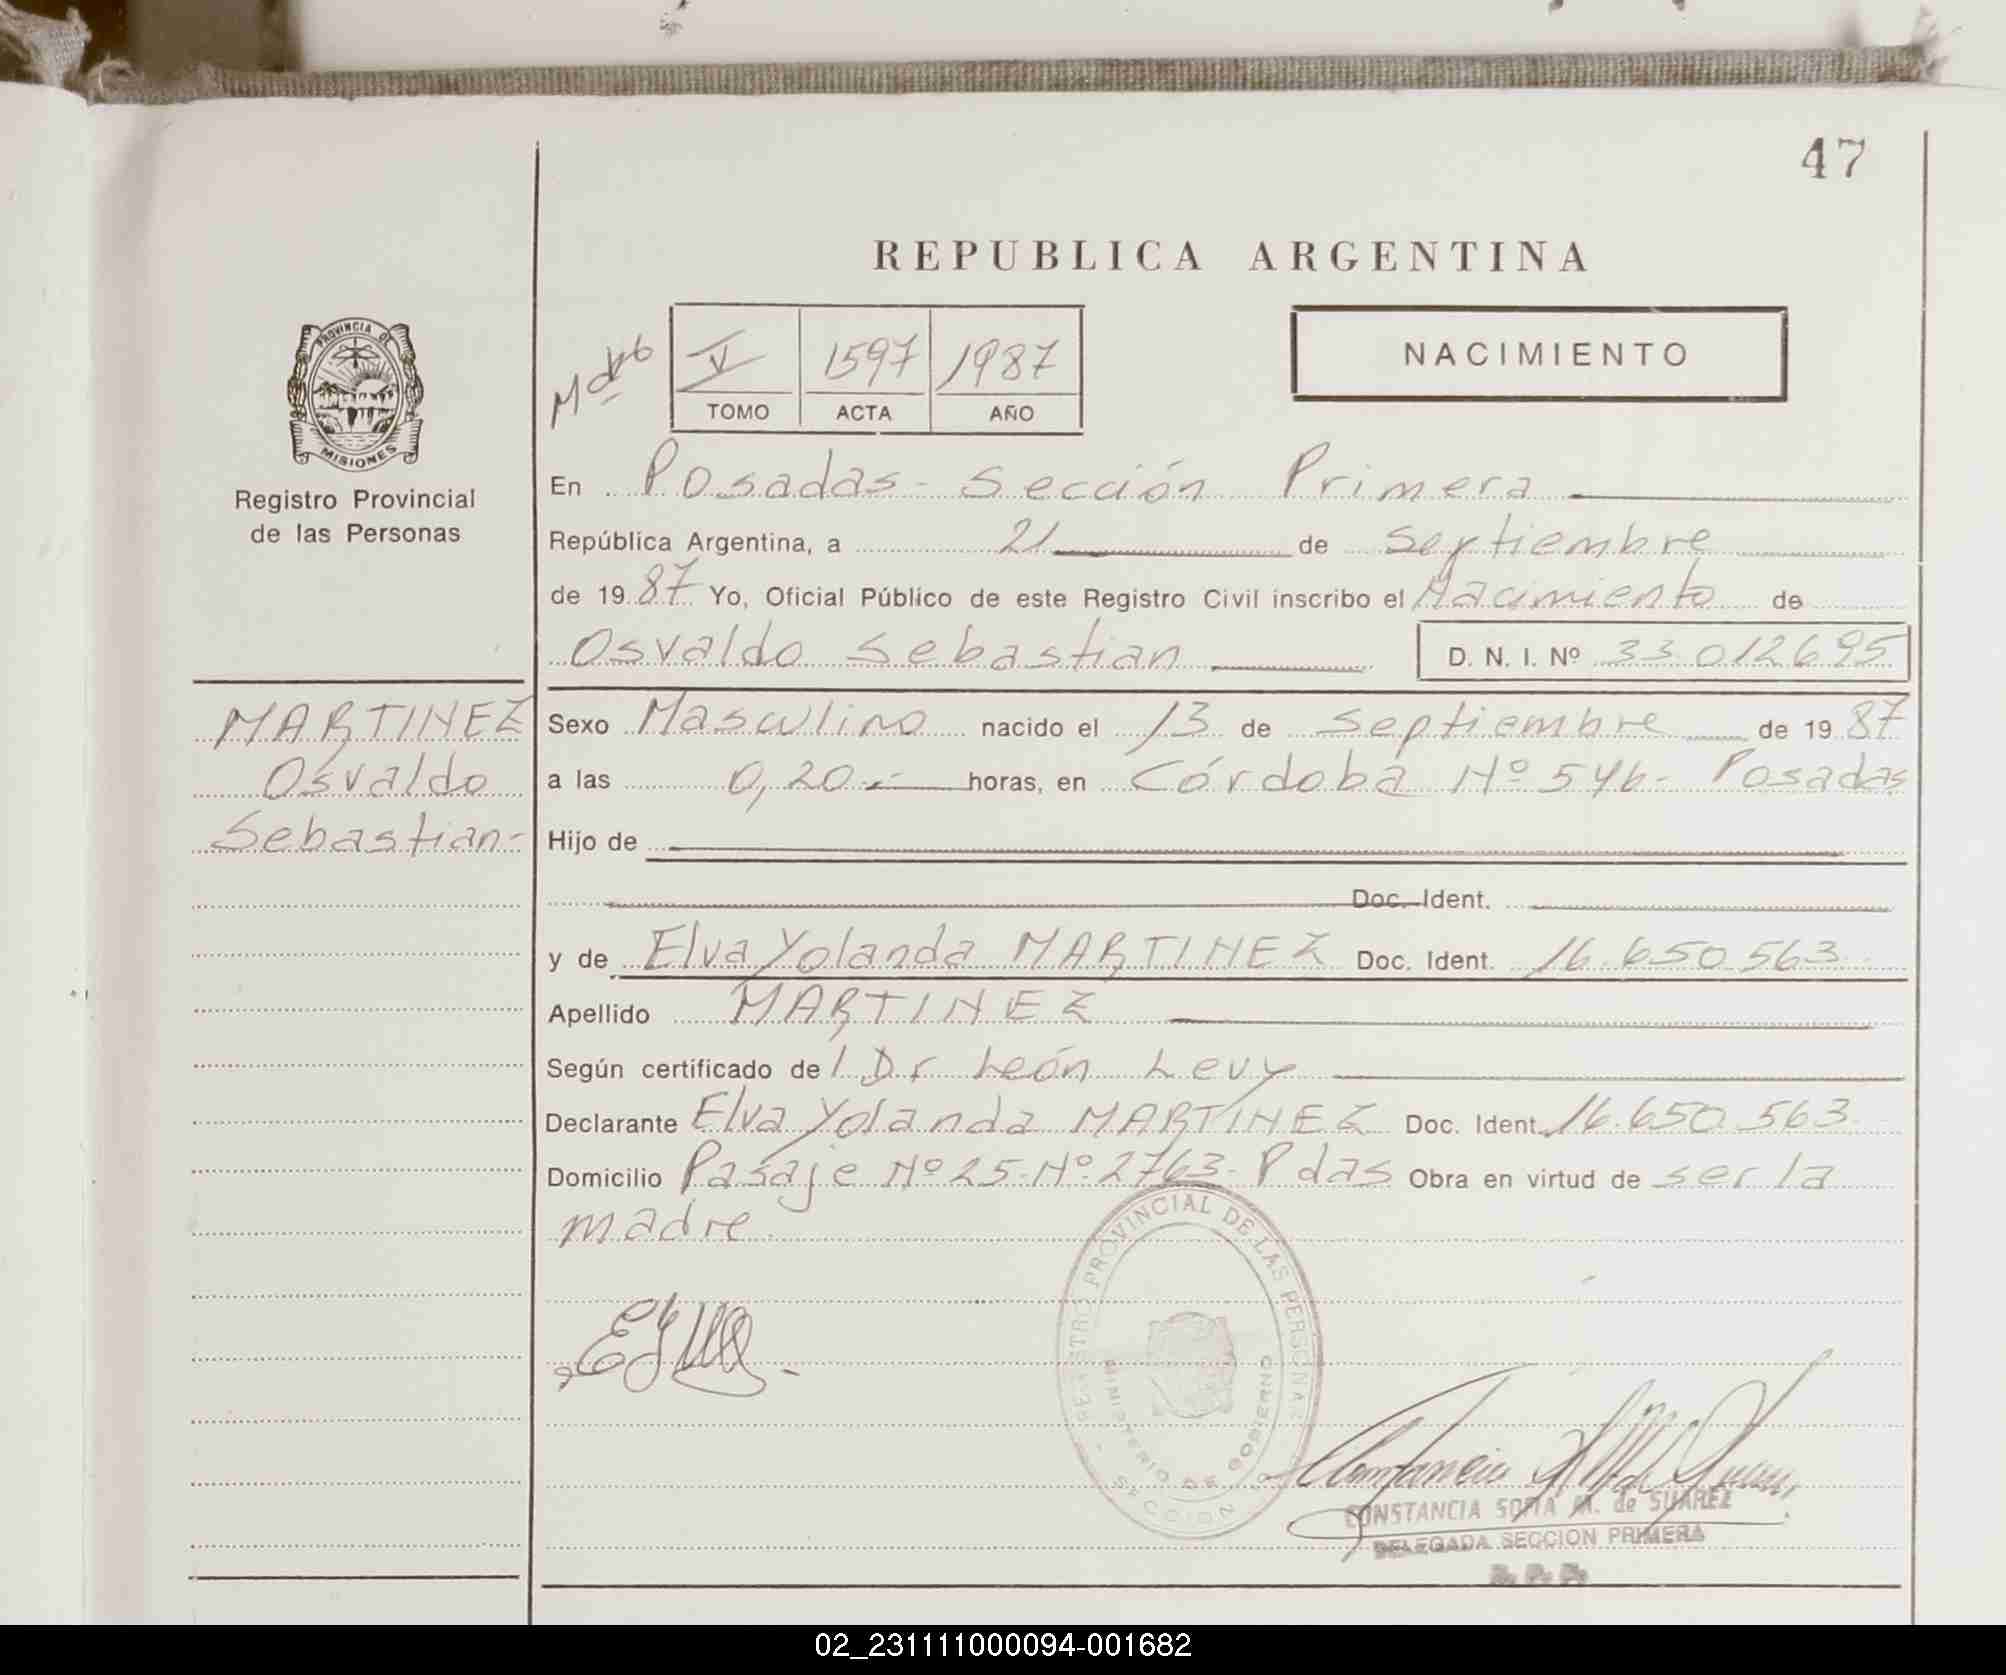 47
REPUBLICA ARGENTINA
V 1597 1987
TOMO ACTA AÑO
NACIMIENTO
PROVINCIA DE
MISIONES
Registro Provincial
de las Personas
En Posadas - Sección Primera
República Argentina, a 21 de Septiembre
de 1987 Yo, Oficial Público de este Registro Civil inscribo el Nacimiento de
Osvaldo Sebastian D. N. I. Nº 33.012695
MARTINEZ
Osvaldo
Sebastian-
Sexo Masculino nacido el 13 de Septiembre de 1987
a las 0,20.- horas, en Córdoba Nº 546- Posadas
Hijo de
Doc. Ident.
y de Elva Yolanda MARTINEZ Doc. Ident. 16.650.563
Apellido MARTINEZ
Según certificado del Dr León Levy
Declarante Elva Yolanda MARTINEZ Doc. Ident. 16.650.563
Domicilio Pasaje Nº 25-Nº 2763- Pdas Obra en virtud de ser la
madre
REGISTRO PROVINCIAL DE LAS PERSONAS
MINISTERIO DE GOBIERNO
SECCION 1ª
CONSTANCIA SOFIA M. de SUAREZ
DELEGADA SECCION PRIMERA
R. P. P.
02_231111000094-001682